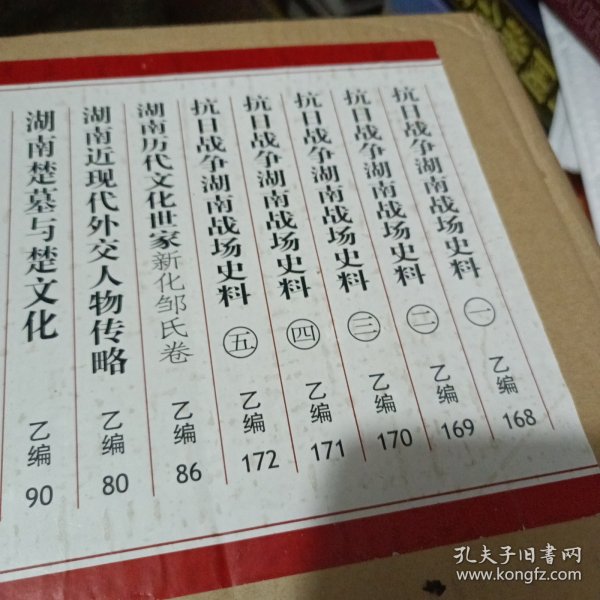 抗日战争湖南战场史料 一 乙编 168
抗日战争湖南战场史料 二 乙编 169
抗日战争湖南战场史料 三 乙编 170
抗日战争湖南战场史料 四 乙编 171
抗日战争湖南战场史料 五 乙编 172
湖南历代文化世家 新化邹氏卷 乙编 86
湖南近现代外交人物传略 乙编 80
湖南楚墓与楚文化 乙编 90
孔夫子旧书网
www.kongfz.com